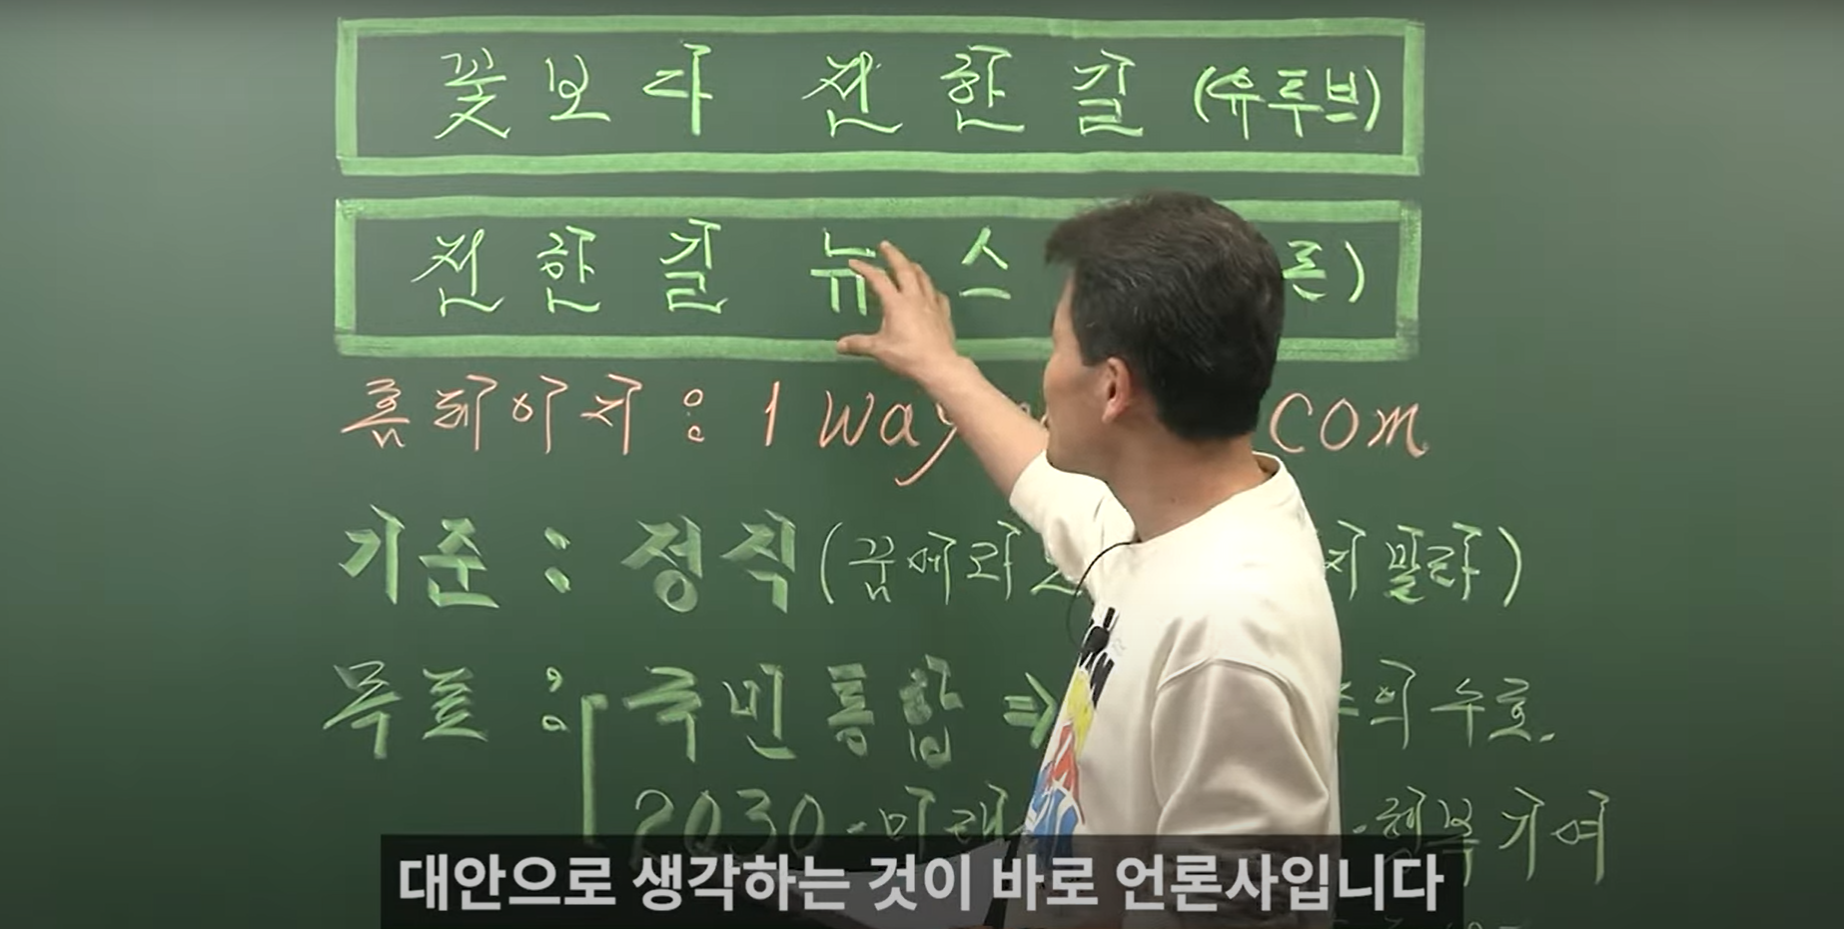 꽃보다 전한길 (유투브)
전한길 뉴스 론)
홈페이지 : 1way com
기준 : 정직 (꿈에라 지 말라)
목표 : 국민통합 ⇒ 의 수호.
2030·미래 행복 기여
대안으로 생각하는 것이 바로 언론사입니다